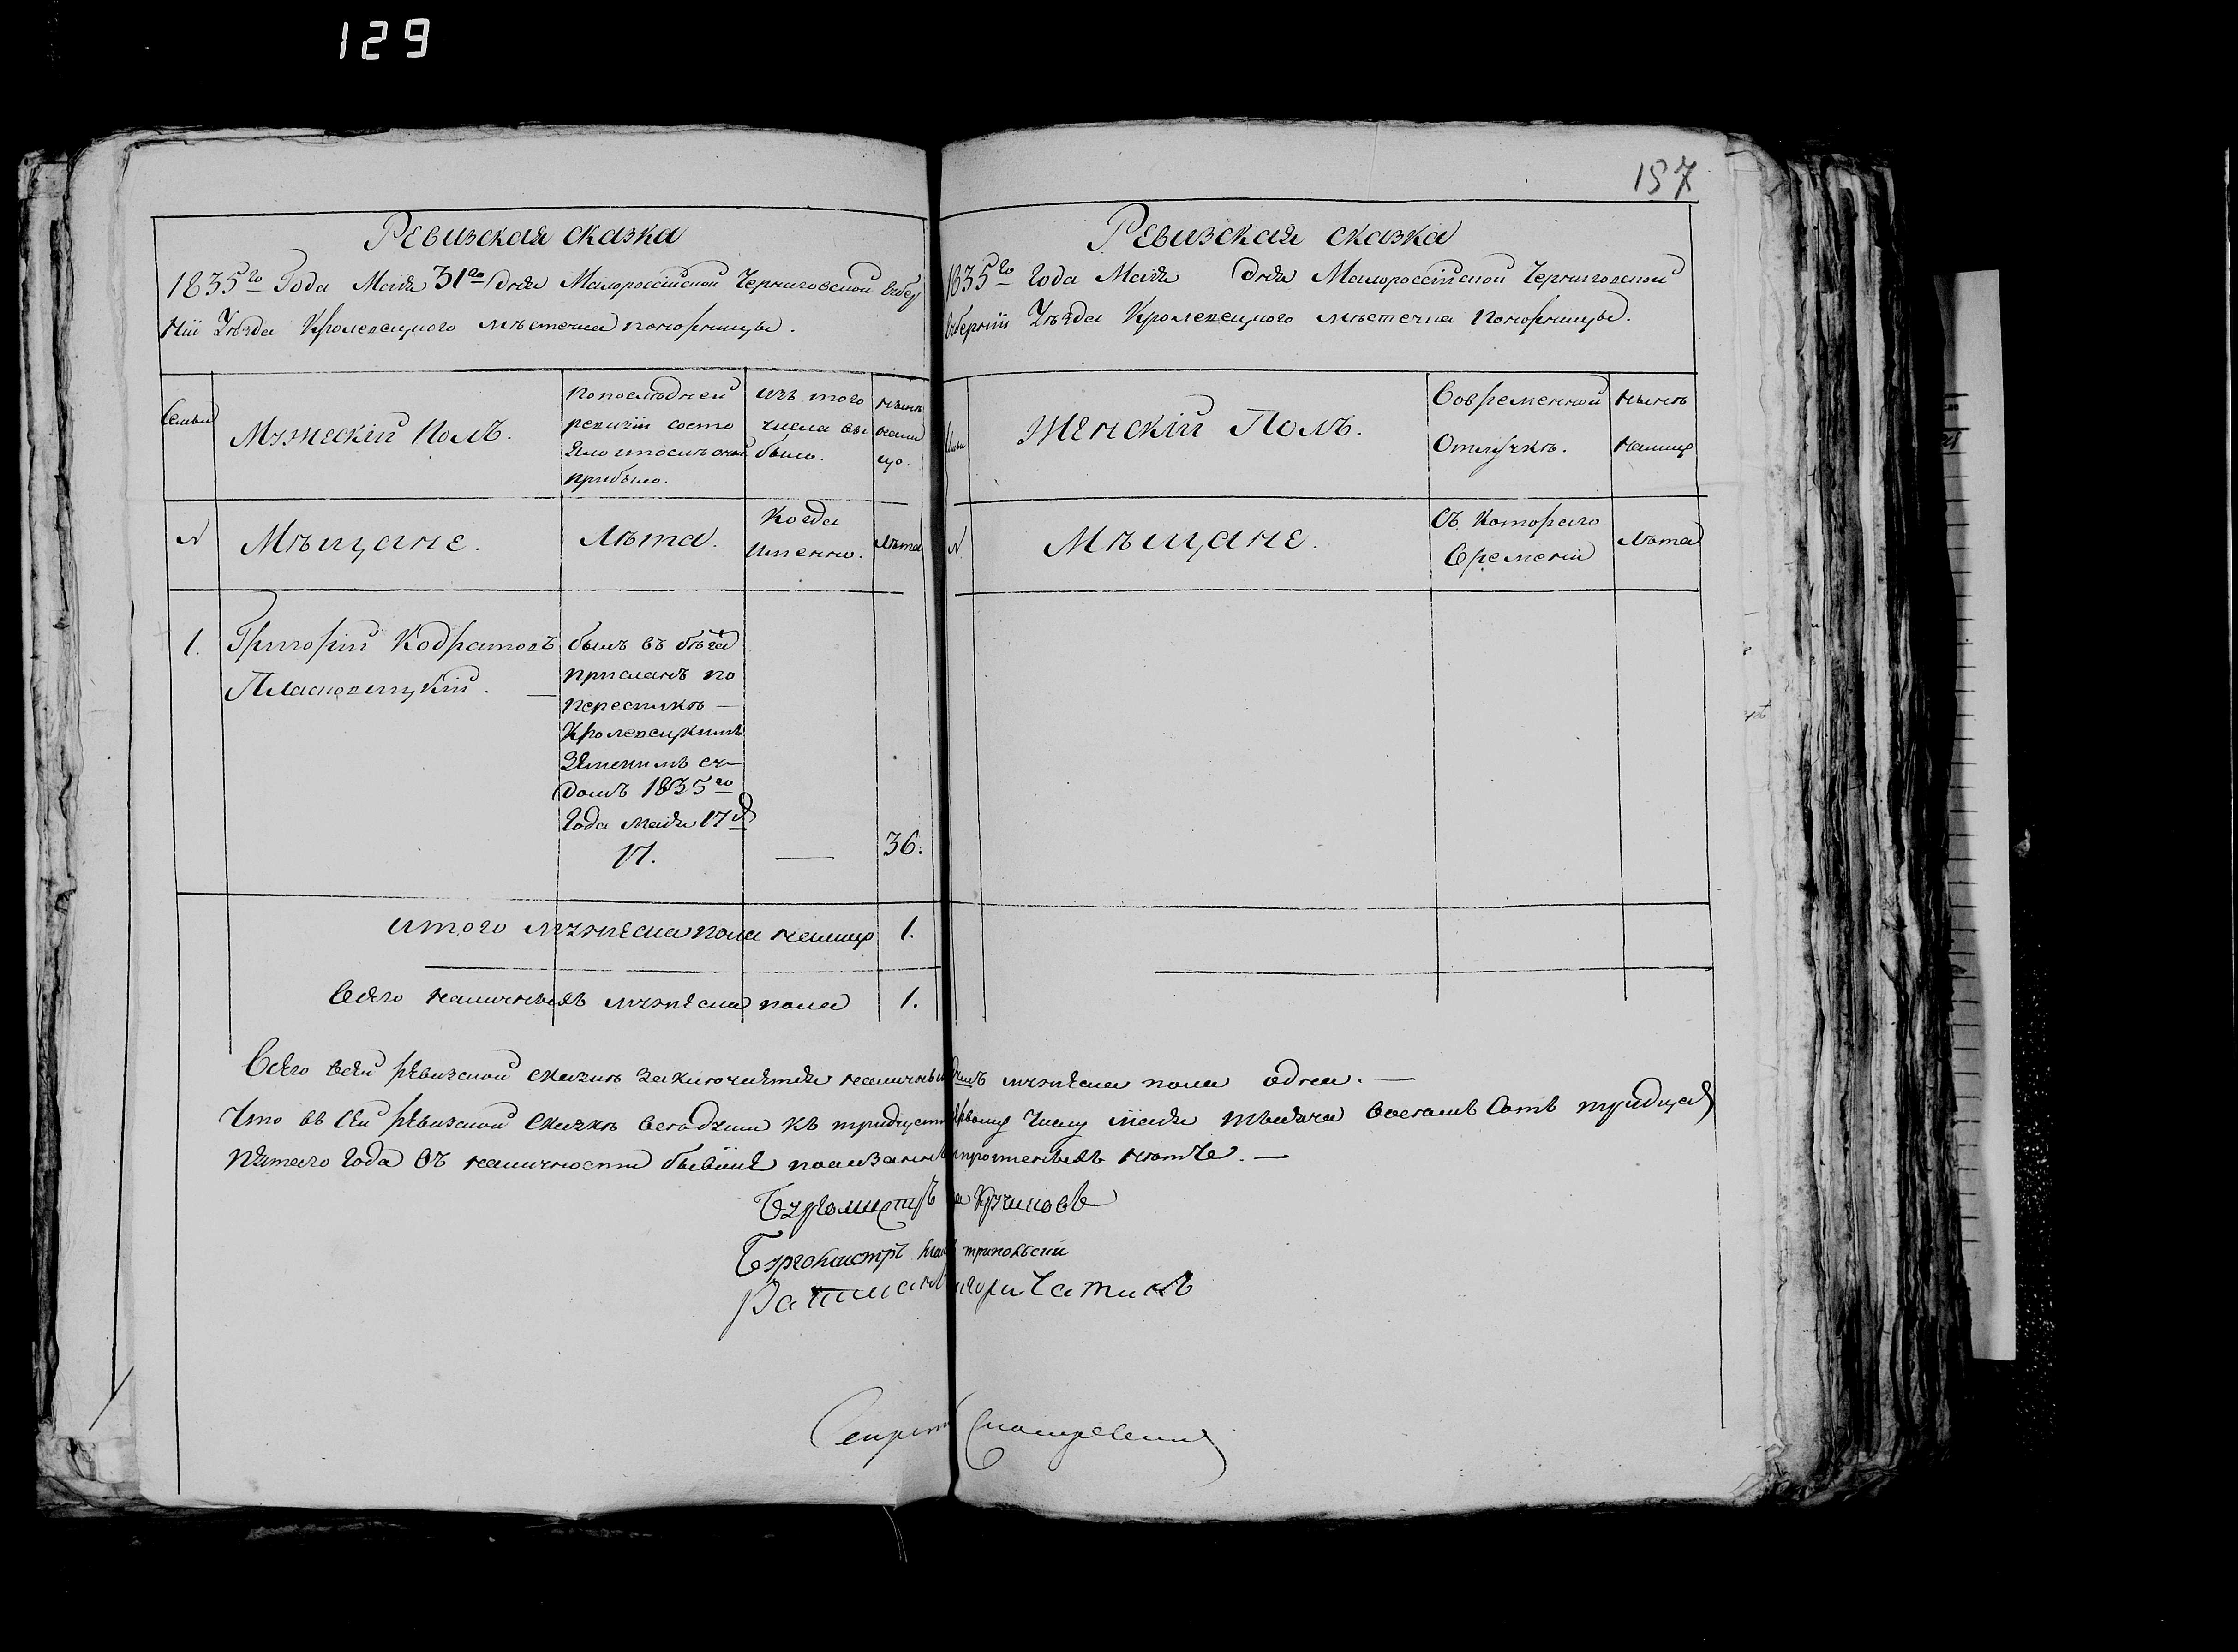 129
157
Ревизская сказка
1835го Года Маия 31го дня Малороссійской Черниговской Губер
ніи Уѣзда Кролевецкого мѣстечка Понорницы.
Семьи
Мужескій Полъ.
по последней
ревизіи состо
яло и после оной
прибыло.
изъ того
числа вы
было.
нынѣ
нали
цо.
N
Мѣщане.
Лѣта.
Когда
именно.
Лѣта
1.
Григорій Кодратовъ
былъ въ бѣга
присланъ по
пересилкѣ —
Кролевецкимъ
Земскимъ су-
домъ 1835го
Года маия 17
17.
—
36.
итого мужеска пола налицо 1.
Всего наличныхъ мужеска пола 1.
Ревизская сказка
1835го Года Маия дня Малороссійской Черниговской
Губерніи Уѣзда Кролевецкого мѣстечка Понорницы.
Женскій Полъ.
Во временной
Отлучкѣ.
нынѣ
налицо
N.
Мѣщане.
Съ Котораго
времени
Лѣта
Всего всей ревизской сказкѣ заключается наличныхъ душъ мужеска пола одна. —
Что въ сей ревизской сказкѣ все души къ тридцать первому числу маия тысяча восемъ сотъ тридцать
пятаго года въ наличности бывшие показаны и прописныхъ нетъ. —
Бургомистръ
Бургомистръ
Ратманъ